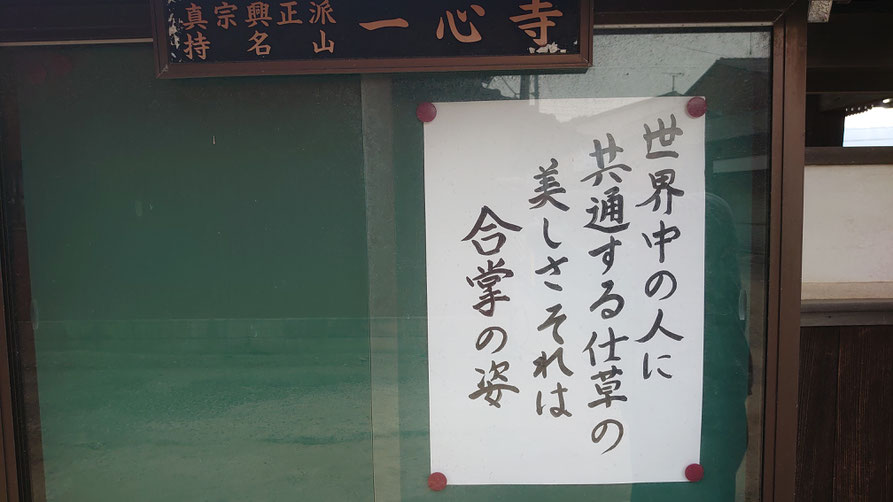 真宗興正派
持名山
一心寺
世界中の人に
共通する仕草の
美しさそれは
合掌の姿